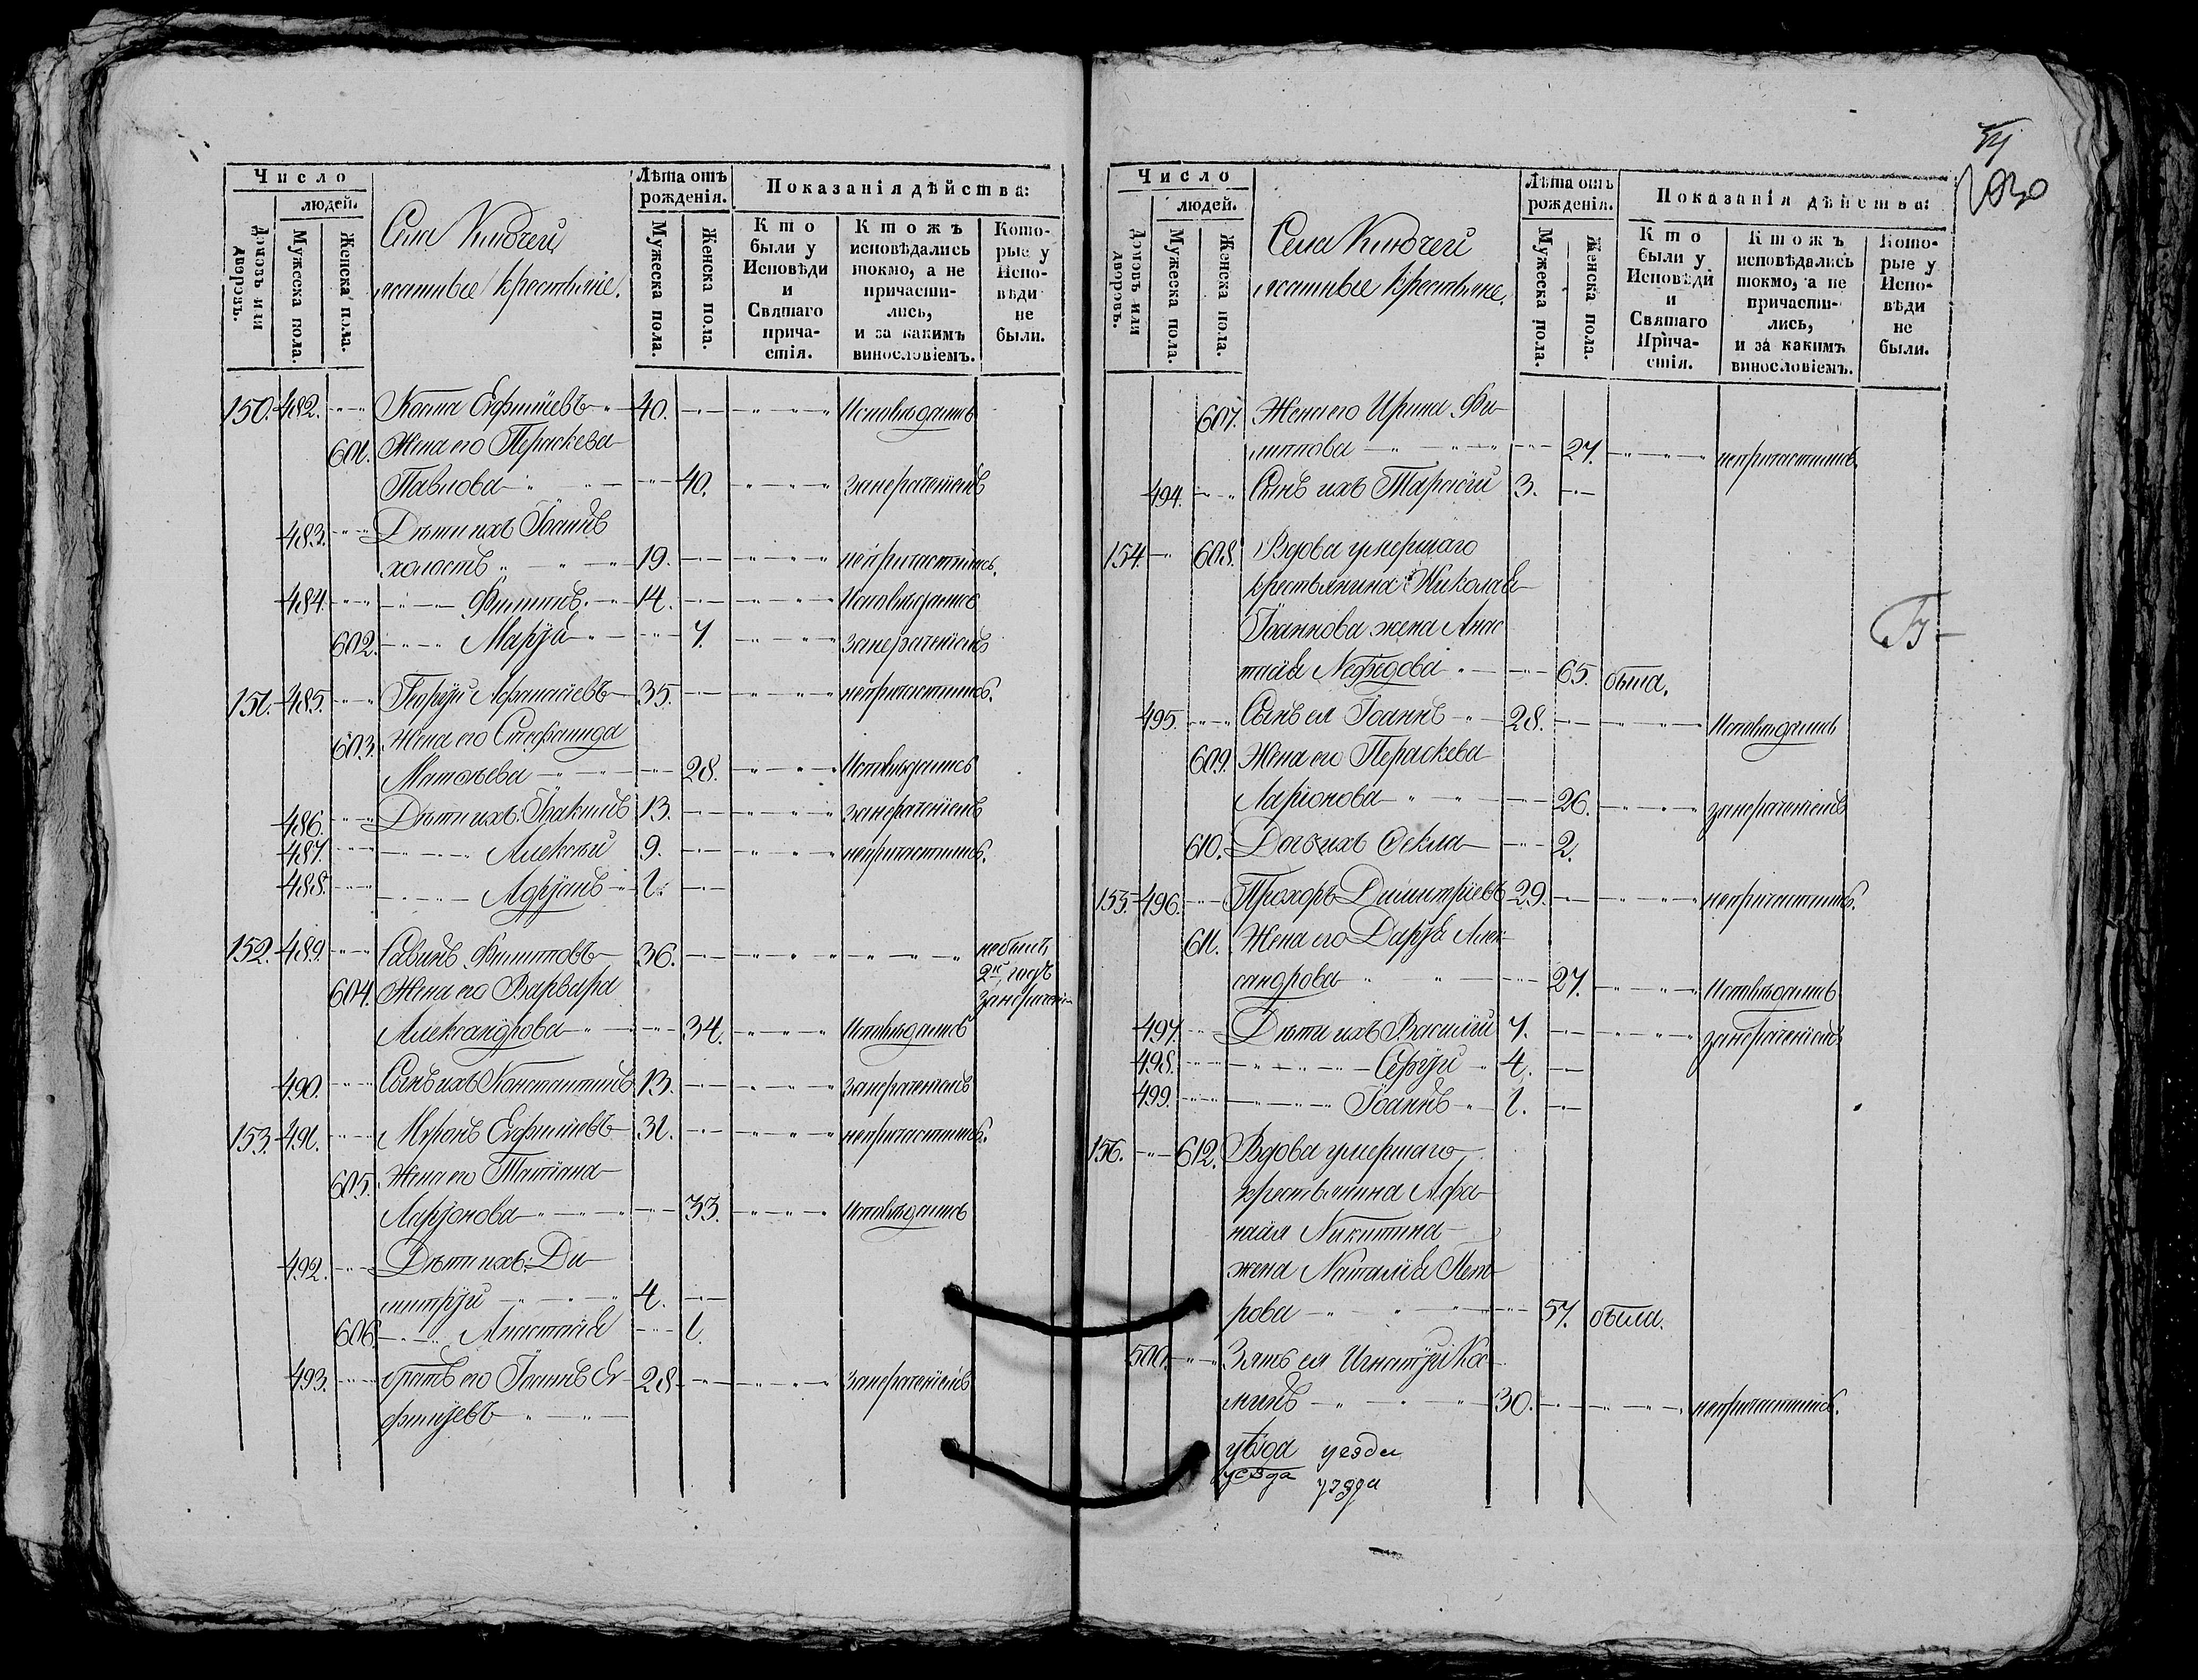 Число
людей.
Домовъ или дворовъ.
Мужеска пола.
Женска пола.
Села Ключей
ясашные крестьяне.
Лѣта отъ рожденія.
Мужеска пола.
Женска пола.
Показанія дѣйства:
Кто были у Исповѣди и Святаго причастія.
Ктожъ исповѣдались токмо, а не причастились, и за какимъ винословіемъ.
Которые у Исповѣди не были.
150. 482. Косма Евфиміевъ 40. Исповѣдались
601. Жена его Параскева
Павлова 40. занераченіемъ
483. Дѣти ихъ Іоаннъ
холостъ 19. непричастились.
484. Филиппъ 14. Исповѣдались
602. Марѳа 7. занераченіемъ
151. 485. Георгій Афанасіевъ 35. непричастились.
603. Жена его Стефанида
Матвѣева 28. Исповѣдались
486. Дѣти ихъ: Іоакимъ 13. занераченіемъ
487. Алексѣй 9. непричастились.
488. Адріанъ 1.
152. 489. Савинъ Филипповъ 36. небылъ
2й годъ
604. Жена его Варвара занераченіе
Александрова 34. Исповѣдались
490. Сынъ ихъ Константинъ 13. занераченіемъ
153. 491. Миронъ Евфиміевъ 31. непричастились.
605. Жена его Татіана
Ларіонова 33. Исповѣдались
492. Дѣти ихъ: Ди-
митрій 4.
606. Анастасія 1.
493. братъ его Іоаннъ Ев- 28 занераченіемъ
фиміевъ
1030
Число
людей.
Домовъ или дворовъ.
Мужеска пола.
Женска пола.
Села Ключей
ясашные крестьяне.
Лѣта отъ рожденія.
Мужеска пола.
Женска пола.
Показанія дѣйства:
Кто были у Исповѣди и Святаго Причастія.
Ктожъ исповѣдались токмо, а не причастились, и за какимъ винословіемъ.
Которые у Исповѣди не были.
607. Жена его Ирина Фи-
липпова 27. непричастились.
494. Сынъ ихъ Тарасій 3.
154. 608. Вдова умершаго
крестьянина Николая
Іоаннова жена Анас
тасія Нефедова 65. была.
495. Сынъ ея Іоаннъ 28. Исповѣдались
609. Жена его Параскева
Ларіонова 26. занераченіемъ
610. Дочь ихъ Ѳекла 2.
155. 496. Прохоръ Димитріевъ 29. непричастились.
611. Жена его Дарья Алек-
сандрова 27. Исповѣдались
497. Дѣти ихъ Василій 7. занераченіемъ
498. Сергій 4.
499. Іоаннъ 1.
156. 612. Вдова умершаго
крестьянина Афа-
насія Никитина
жена Наталія Пет-
рова 57. была.
500. Зять ея Игнатій Кос-
минъ 30. непричастились.
уѣзда уезда
уезда уезда